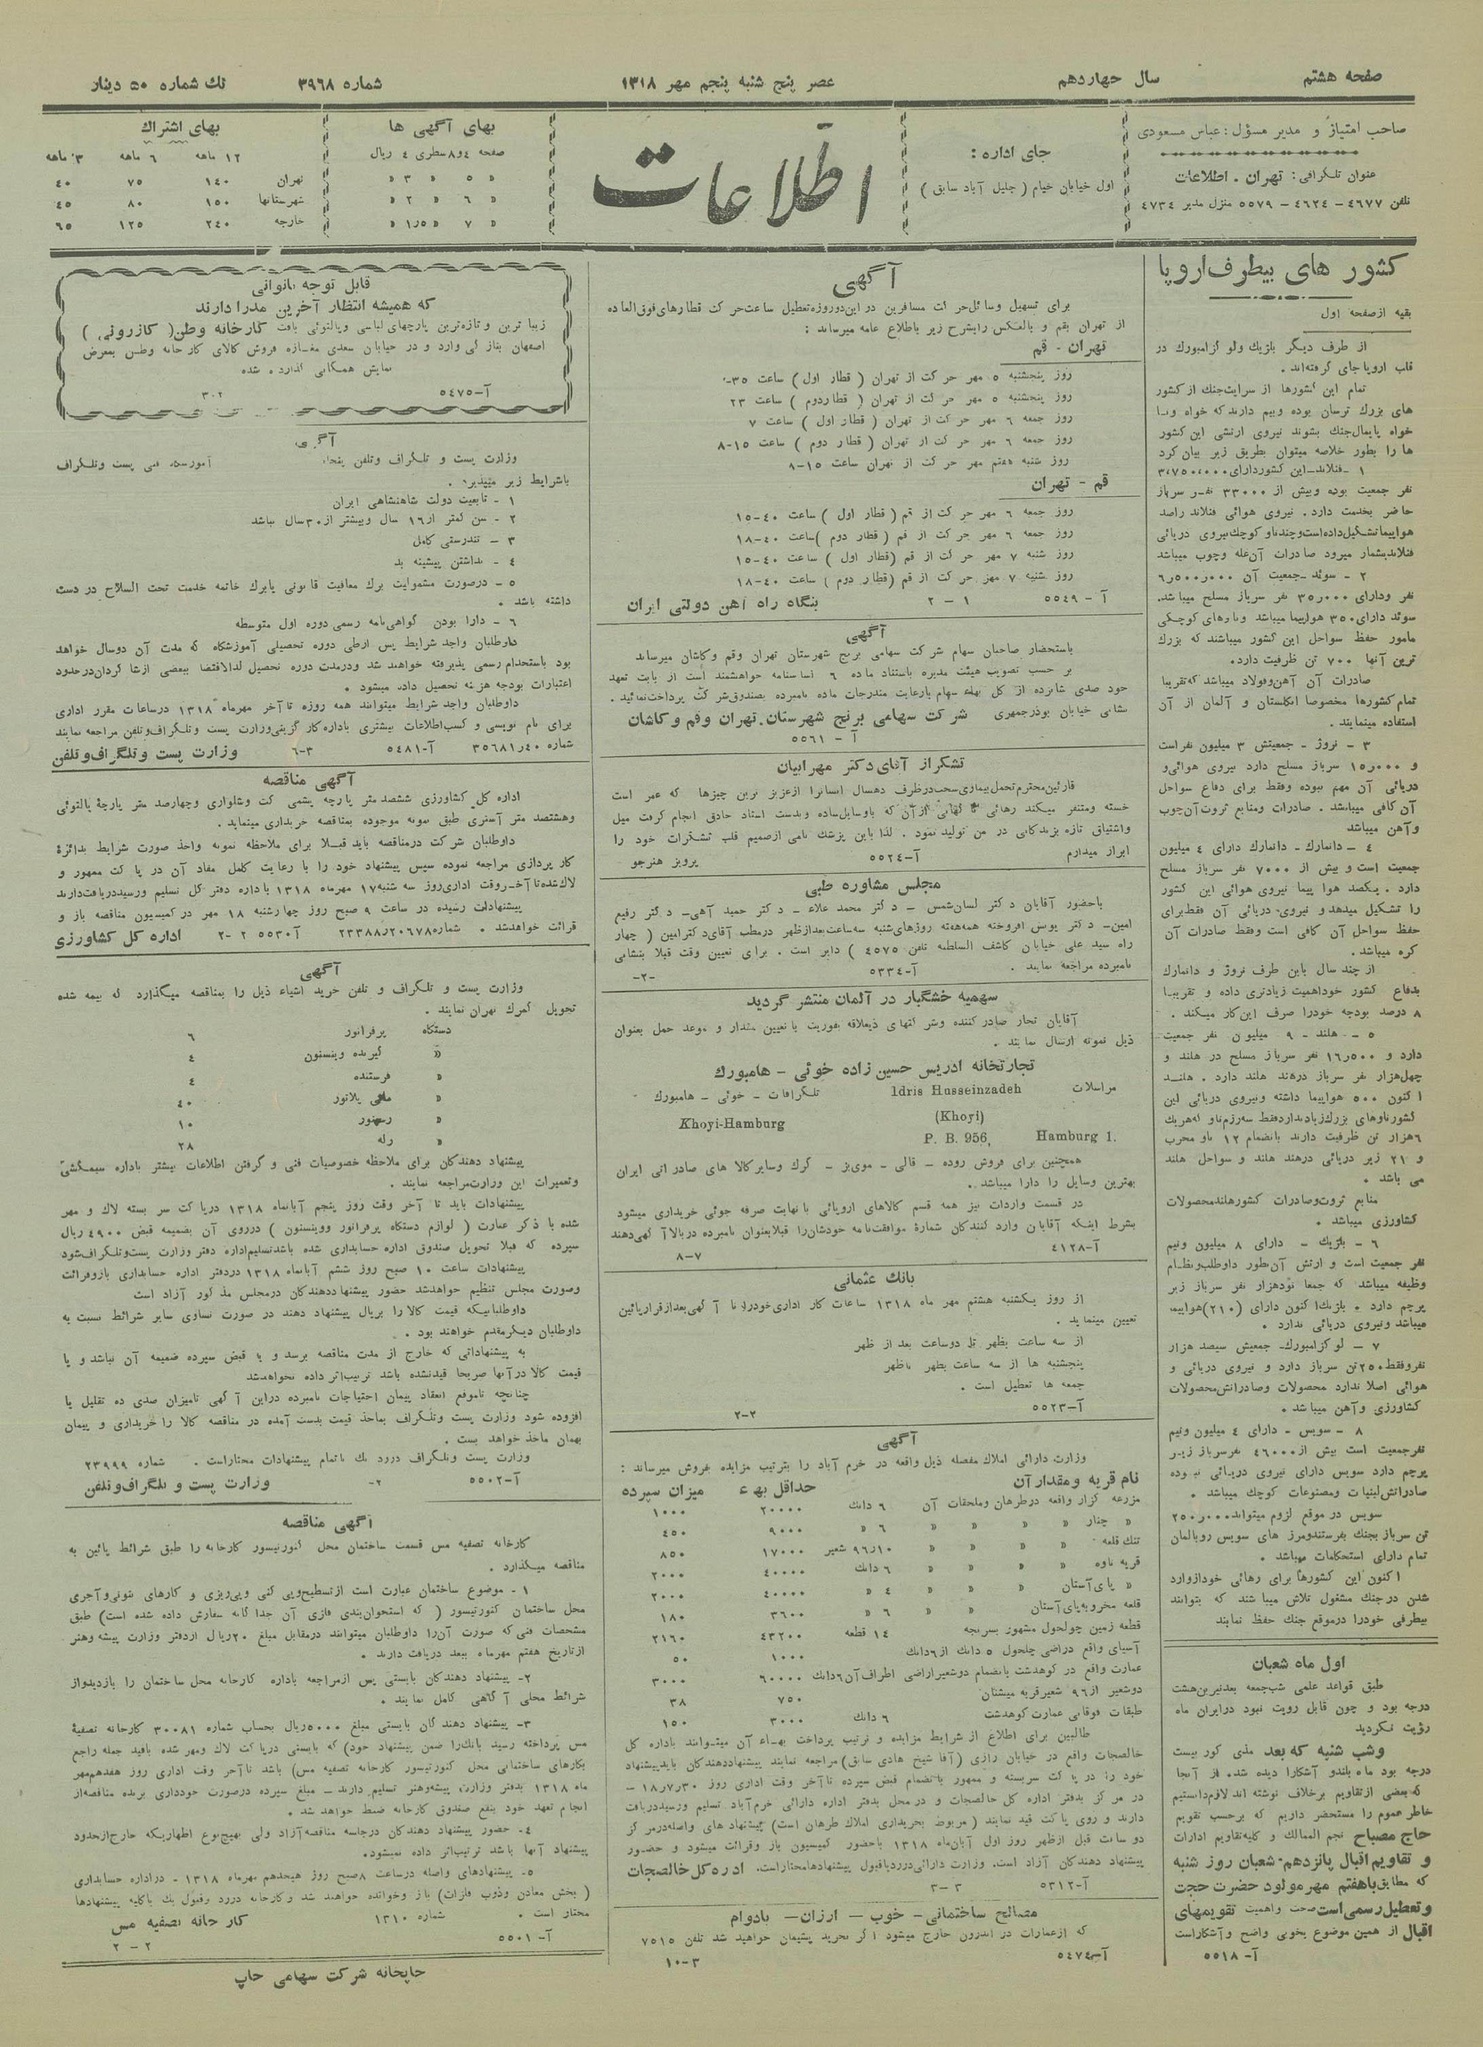 صفحه هشتم
سال چهاردهم
عصر پنج شنبه پنجم مهر ۱۳۱۸
شماره ۳۹۶۸
تك شماره ۵۰ دینار
صاحب امتیاز و مدیر مسؤل : عباس مسعودی
عنوان تلگرافی : تهران . اطلاعات
تلفن ۴۶۷۷ – ۴۶۲۴ – ۵۵۷۹ منزل مدیر ۴۷۳۴
جای اداره :
اول خیابان خیام ( جلیل آباد سابق )
اطلاعات
بهای آگهی ها
صفحه ۴و۸ سطری ۴ ریال
« ۵ « ۳ «
« ۶ « ۲ «
« ۷ « ۱٫۵ «
بهای اشتراك
۱۲ ماهه ۶ ماهه ۳ ماهه
تهران ۱۴۰ ۷۵ ۴۰
شهرستانها ۱۵۰ ۸۰ ۴۵
خارجه ۲۴۰ ۱۲۵ ۶۵
کشور های بیطرف اروپا
بقیه از صفحه اول
از طرف دیگر بلژیك ولو گزامبورك در
قلب اروپا جای گرفته‌اند .
تمام این کشورها از سرایت جنك از کشور
های بزرك ترسان بوده وبیم دارند که خواه و نا
خواه پایمال جنك بشوند نیروی ارتشی این کشور
ها را بطور خلاصه میتوان بطریق زیر بیان کرد
۱ – فنلاند – این کشور دارای ۳٫۷۵۰٫۰۰۰
نفر جمعیت بوده و بیش از ۳۳۰۰۰ نفر سرباز
حاضر بخدمت دارد . نیروی هوائی فنلاند را صد
هواپیما تشکیل داده است و چند ناو کوچك نیروی دریائی
فنلاند بشمار میرود صادرات آن غله وچوب میباشد
۲ – سوئد – جمعیت آن ۶٫۵۰۰٫۰۰۰
نفر ودارای ۳۵٫۰۰۰ نفر سرباز مسلح میباشد.
سوئد دارای ۳۵۰ هواپیما میباشد وناوهای کوچکی
مامور حفظ سواحل این کشور میباشند که بزرك
ترین آنها ۷۰۰ تن ظرفیت دارد.
صادرات آن آهن وفولاد میباشد که تقریبا
تمام کشورها مخصوصا انگلستان و آلمان از آن
استفاده مینمایند .
۳ – نروژ – جمعیتش ۳ میلیون نفر است
و ۱۵٫۰۰۰ سرباز مسلح دارد نیروی هوائی و
دریائی آن مهم نبوده وفقط برای دفاع سواحل
آن کافی میباشد . صادرات ومنابع ثروت آن چوب
و آهن میباشد
۴ – دانمارك – دانمارك دارای ۴ میلیون
جمعیت است و بیش از ۷۰۰۰ نفر سرباز مسلح
دارد . یکصد هوا پیما نیروی هوائی این کشور
را تشکیل میدهد و نیروی دریائی آن فقط برای
حفظ سواحل آن کافی است وفقط صادرات آن
کره میباشد .
از چند سال باین طرف نروژ و دانمارك
بدفاع کشور خود اهمیت زیادتری داده و تقریبا
۸ درصد بودجه خودرا صرف این کار میکند .
۵ – هلند – ۹ میلیون نفر جمعیت
دارد و ۱۶٫۵۰۰ نفر سرباز مسلح در هلند و
چهل هزار نفر سرباز در هند هلند دارد . هلند
اکنون ۵۰۰ هواپیما داشته ونیروی دریائی این
کشور ناوهای بزرك زیاد ندارد فقط سه رزم ناو که هر یك
۶ هزار تن ظرفیت دارند بانضمام ۱۲ ناو مخرب
و ۲۱ زیر دریائی در هند هلند و سواحل هلند
می باشد .
منابع ثروت و صادرات کشور هلند محصولات
کشاورزی میباشد .
۶ – بلژیك – دارای ۸ میلیون ونیم
نفر جمعیت است و ارتش آن بطور داوطلب و نظام
وظیفه میباشد که جمعا نود هزار نفر سرباز زیر
پرچم دارد . بلژیك اکنون دارای (۲۱۰) هواپیما
میباشد و نیروی دریائی ندارد .
۷ – لو گزامبورك – جمعیتش سیصد هزار
نفر وفقط ۲۵۰ تن سرباز دارد و نیروی دریائی و
هوائی اصلا ندارد محصولات و صادراتش محصولات
کشاورزی و آهن میباشد .
۸ – سویس – دارای ۴ میلیون ونیم
نفر جمعیت است بیش از ۴۶۰۰۰ نفر سرباز زیر
پرچم دارد سویس دارای نیروی دریائی نبوده
صادراتش لبنیات و مصنوعات کوچك میباشد .
سویس در موقع لزوم میتواند ۲۵۰٫۰۰۰
تن سرباز بجنك بفرستد و مرز های سویس رو بالمان
تمام دارای استحکامات میباشد .
اکنون این کشورها برای رهائی خود از وارد
شدن در جنك مشغول تلاش میباشند که بتوانند
بیطرفی خودرا در موقع جنك حفظ نمایند
اول ماه شعبان
طبق قواعد علمی شب جمعه بعد نیرین هشت
درجه بود و چون قابل رویت نبود در ایران ماه
رؤیت نگردید
وشب شنبه که بعد مذکور بیست
درجه بود ماه بلند و آشکارا دیده شد. از آنجا
که بعضی از تقاویم برخلاف نوشته اند لازم دانستیم
خاطر عموم را مستحضر داریم که برحسب تقویم
حاج مصباح نجم الممالك و کلیه تقاویم ادارات
و تقاویم اقبال پانزدهم شعبان روز شنبه
که مطابق با هفتم مهر مولود حضرت حجت
و تعطیل رسمی است صحت واهمیت تقویمهای
اقبال از همین موضوع بخوبی واضح و آشکار است
آ- ۵۵۱۸
آگهی
برای تسهیل وسائل حرکت مسافرین در این دو روزه تعطیل ساعت حرکت قطارهای فوق العاده
از تهران بقم و بالعکس را بشرح زیر باطلاع عامه میرساند :
تهران - قم
روز پنجشنبه ۵ مهر حرکت از تهران ( قطار اول ) ساعت
روز پنجشنبه ۵ مهر حرکت از تهران ( قطار دوم ) ساعت ۲۳
روز جمعه ۶ مهر حرکت از تهران ( قطار اول ) ساعت ۷
روز جمعه ۶ مهر حرکت از تهران ( قطار دوم ) ساعت ۱۵-۸
روز شنبه هفتم مهر حرکت از تهران ساعت ۱۵-۸
قم - تهران
روز جمعه ۶ مهر حرکت از قم ( قطار اول ) ساعت ۴۰-۱۵
روز جمعه ۶ مهر حرکت از قم ( قطار دوم ) ساعت ۴۰-۱۸
روز شنبه ۷ مهر حرکت از قم ( قطار اول ) ساعت ۴۰-۱۵
روز شنبه ۷ مهر حرکت از قم ( قطار دوم ) ساعت ۴۰-۱۸
آ - ۵۵۴۹ ۱ - ۲ بنگاه راه آهن دولتی ایران
آگهی
باستحضار صاحبان سهام شرکت سهامی برنج شهرستان تهران وقم وکاشان میرساند
بر حسب تصویب هیئت مدیره باستناد ماده ۶ اساسنامه خواهشمند است از بابت تعهد
خود صدی شانزده از کل بهاء سهام با رعایت مندرجات ماده نامبرده بصندوق شرکت پرداخت نمائید .
نشانی خیابان بوذرجمهری شرکت سهامی برنج شهرستان. تهران وقم و کاشان
آ - ۵۵۶۱
تشکر از آقای دکتر مهرابیان
قارئین محترم تحمل بیماری سخت در ظرف دهسال انسانرا از عزیز ترین چیزها که عمر است
خسته ومتنفر میکند رهائی ناگهانی از آن که با وسایل ساده وبدست استاد حاذق انجام گرفت میل
واشتیاق تازه بزندگانی در من تولید نمود . لذا باین پزشك نامی از صمیم قلب تشکرات خود را
ابراز میدارم آ-۵۵۲۴ پرویز هنرجو
مجلس مشاوره طبی
با حضور آقایان دکتر لسان شمس – دکتر محمد علاء – دکتر حمید آهی – دکتر رفیع
امین – دکتر یونس افروخته همه هفته روزهای شنبه سه ساعت بعد از ظهر در مطب آقای دکتر امین ( چهار
راه سید علی خیابان کاشف السلطنه تلفن ۴۵۷۵ ) دایر است . برای تعیین وقت قبلا بنشانی
نامبرده مراجعه نمایند . آ-۵۳۳۴ -۲-
سهمیه خشگبار در آلمان منتشر گردید
آقایان تجار صادر کننده وشرکتهای ذیعلاقه بفوریت با تعیین مقدار و موعد حمل بعنوان
ذیل نمونه ارسال نمایند .
تجارتخانه ادریس حسین زاده خوئی – هامبورك
مراسلات Idris Husseinzadeh تلگرافات – خوئی – هامبورك
(Khoyi) Khoyi-Hamburg
P. B. 956, Hamburg 1.
همچنین برای فروش روده – قالی – مویبز – كرك وسایر کالا های صادراتی ایران
بهترین وسایل را دارا میباشد .
در قسمت واردات نیز همه قسم کالاهای اروپائی با نهایت صرفه جوئی خریداری میشود
بشرط اینکه آقایان وارد کنندگان شماره موافقت نامه خودشان را قبلا بعنوان نامبرده در بالا آگهی دهند
آ-۴۱۲۸ ۷–۸
بانك عثمانی
از روز یکشنبه هشتم مهر ماه ۱۳۱۸ ساعات کار اداری خود را تا آگهی بعد از قرار پائین
تعیین مینماید .
از سه ساعت بظهر تا دو ساعت بعد از ظهر
پنجشنبه ها از سه ساعت بظهر تا ظهر
جمعه ها تعطیل است .
آ-۵۵۲۳ ۲-۲
آگهی
وزارت دارائی املاك مفصله ذیل واقعه در خرم آباد را بترتیب مزایده بفروش میرساند :
نام قریه ومقدار آن حداقل بهاء میزان سپرده
مزرعه گزار واقعه در طرهان و ملحقات آن ۶ دانك ۲۰۰۰۰ ۱۰۰۰
« چنار « « « ۶ « ۹۰۰۰ ۴۵۰
تنك قلعه « « « ۱۰ر۹۶ شعیر ۱۷۰۰۰ ۸۵۰
قریه ناوه « « « ۶ دانك ۴۰۰۰۰ ۲۰۰۰
« پای آستان « « « ۴ « ۴۰۰۰۰ ۲۰۰۰
قلعه مخروبه پای آستان « « ۶ « ۳۶۰۰ ۱۸۰
قطعه زمین چولحول مشهور بسرنجه ۱۴ قطعه ۴۳۲۰۰ ۲۱۶۰
آسیای واقع در اراضی چلحول ۵ دانك از ۶ دانك ۱۰۰۰ ۵۰
عمارت واقع در کوهدشت بانضمام دوشعیر اراضی اطراف آن ۶ دانك ۶۰۰۰۰ ۳۰۰۰
دوشعیر از ۹۶ شعیر قریه میشنان ۷۵۰ ۳۸
طبقات فوقانی عمارت کوهدشت ۶ دانك ۳۰۰۰ ۱۵۰
طالبین برای اطلاع از شرایط مزایده و ترتیب پرداخت بهاء آن میتوانند باداره کل
خالصجات واقع در خیابان رازی ( آقا شیخ هادی سابق ) مراجعه نمایند پیشنهاد دهندگان باید پیشنهاد
خود را در پاکت سربسته و ممهور بانضمام قبض سپرده تا آخر وقت اداری روز ۳۰ر۷ر۱۸ –
در مرکز بدفتر اداره کل خالصجات و در محل بدفتر اداره دارائی خرم آباد تسلیم ورسید دریافت
دارند و روی پاکت قید نمایند ( مربوط بخریداری املاك طرهان است ) پیشنهاد های واصله در مرکز
دو ساعت قبل از ظهر روز اول آبان ماه ۱۳۱۸ باحضور کمیسیون باز وقرائت میشود و حضور
پیشنهاد دهندگان آزاد است. وزارت دارائی در رد یا قبول پیشنهادها مختار است. اداره کل خالصجات
آ-۵۳۱۲ ۳-۳
مصالح ساختمانی – خوب – ارزان – بادوام
که از عمارات در اندرون خارج میشود اگر نخرید پشیمان خواهید شد تلفن ۷۵۱۵
آ-۵۴۷۴ ۳-۱۰
قابل توجه بانوانی
که همیشه انتظار آخرین مد را دارند
زیبا ترین و تازه ترین پارچهای لباسی و پالتوئی بافت کارخانه وطن ( کازرونی )
اصفهان بتازگی وارد و در خیابان سعدی مغازه فروش کالای کارخانه وطن بمعرض
نمایش همگانی گذارده شده
آ-۵۴۷۵ ۲-۳
آگهی
وزارت پست و تلگراف وتلفن پست وتلگراف
با شرایط زیر میپذیرد .
۱ – تابعیت دولت شاهنشاهی ایران
۲ – سن کمتر از ۱۶ سال وبیشتر از ۳۰ سال نباشد
۳ – تندرستی کامل
۴ – نداشتن پیشینه بد
۵ – در صورت مشمولیت برك معافیت قانونی یا برك خاتمه خدمت تحت السلاح در دست
داشته باشد .
۶ – دارا بودن گواهی نامه رسمی دوره اول متوسطه
داوطلبان واجد شرایط پس از طی دوره تحصیلی آموزشگاه که مدت آن دو سال خواهد
بود باستخدام رسمی پذیرفته خواهند شد ودر مدت دوره تحصیل لدالاقتضا ببعضی از شاگردان در حدود
اعتبارات بودجه هزینه تحصیل داده میشود .
داوطلبان واجد شرایط میتوانند همه روزه تا آخر مهر ماه ۱۳۱۸ در ساعات مقرر اداری
برای نام نویسی و کسب اطلاعات بیشتری باداره کار گزینی وزارت پست وتلگراف وتلفن مراجعه نمایند
شماره ۳۵۶۸۱٫۴۰ آ-۵۴۸۱ ۳-۶ وزارت پست و تلگراف و تلفن
آگهی مناقصه
اداره کل کشاورزی ششصد متر پارچه پشمی کت وشلواری و چهارصد متر پارچه پالتوئی
وهشتصد متر آستری طبق نمونه موجوده بمناقصه خریداری مینماید.
داوطلبان شرکت در مناقصه باید قبلا برای ملاحظه نمونه واخذ صورت شرایط بدائره
کار پردازی مراجعه نموده سپس پیشنهاد خود را با رعایت کامل مفاد آن در پاکت ممهور و
لاك شده تا آخر وقت اداری روز سه شنبه ۱۷ مهر ماه ۱۳۱۸ باداره دفتر کل تسلیم ورسید دریافت دارند
پیشنهادات رسیده در ساعت ۹ صبح روز چهارشنبه ۱۸ مهر در کمیسیون مناقصه باز و
قرائت خواهد شد . شماره ۲۳۳۸۸ر۲۰۶۷۸ آ-۵۵۳۰ ۲-۲ اداره کل کشاورزی
آگهی
وزارت پست و تلگراف و تلفن خرید اشیاء ذیل را بمناقصه میگذارد که بیمه شده
تحویل گمرك تهران نمایند .
دستگاه پرفراتور ۶
« گیرنده وینستون ۴
« فرستنده ۴
« ۴۰
« ۱۰
« رله ۲۸
پیشنهاد دهندگان برای ملاحظه خصوصیات فنی و گرفتن اطلاعات بیشتر باداره سیمکشی
وتعمیرات این وزارت مراجعه نمایند .
پیشنهادات باید تا آخر وقت روز پنجم آبانماه ۱۳۱۸ در پاکت سر بسته لاك و مهر
شده با ذکر عبارت ( لوازم دستگاه پرفراتور ووینستون ) در روی آن بضمیمه قبض ۴۹۰۰ ریال
سپرده که قبلا تحویل صندوق اداره حسابداری شده باشد تسلیم اداره دفتر وزارت پست وتلگراف شود
پیشنهادات ساعت ۱۰ صبح روز ششم آبانماه ۱۳۱۸ در دفتر اداره حسابداری باز وقرائت
وصورت مجلس تنظیم خواهد شد حضور پیشنهاد دهندگان در مجلس مذکور آزاد است
داوطلبانیکه قیمت کالا را بریال پیشنهاد دهند در صورت تساوی سایر شرائط نسبت به
داوطلبان دیگر مقدم خواهند بود .
به پیشنهاداتی که خارج از مدت مناقصه برسد و یا قبض سپرده ضمیمه آن نباشد و یا
قیمت کالا در آنها صریحا قید نشده باشد ترتیب اثر داده نخواهد شد
چنانچه تا موقع انعقاد پیمان احتیاجات نامبرده در این آگهی تا میزان صدی ده تقلیل یا
افزوده شود وزارت پست وتلگراف بماخذ قیمت بدست آمده در مناقصه کالا را خریداری و پیمان
بهمان ماخذ خواهد بست .
وزارت پست وتلگراف در رد یك یا تمام پیشنهادات مختار است . شماره ۲۳۹۹۹
آ-۵۵۰۲ ۲- وزارت پست و تلگراف و تلفن
آگهی مناقصه
کارخانه تصفیه مس قسمت ساختمان محل کنورتیسور کارخانه را طبق شرائط پائین به
مناقصه میگذارد .
۱ - موضوع ساختمان عبارت است از تسطیح وپی کنی وپی ریزی و کارهای بتونی و آجری
محل ساختمان کنورتیسور ( که استخوان بندی فلزی آن جداگانه سفارش داده شده است ) طبق
مشخصات فنی که صورت آن را داوطلبان میتوانند در مقابل مبلغ ۲۰ ریال از دفتر وزارت پیشه وهنر
از تاریخ هفتم مهر ماه ببعد دریافت دارند .
۲- پیشنهاد دهندگان بایستی پس از مراجعه باداره کارخانه محل ساختمان را بازدید و از
شرائط محلی آگاهی کامل نمایند .
۳- پیشنهاد دهندگان بایستی مبلغ ۵۰۰۰ ریال بحساب شماره ۳۰۰۸۱ کارخانه تصفیه
مس پرداخته رسید بانك را ضمن پیشنهاد خود ( که بایستی در پاکت لاك ومهر شده با قید جمله راجع
بکارهای ساختمانی محل کنورتیسور کارخانه تصفیه مس ) باشد تا آخر وقت اداری روز هفدهم مهر
ماه ۱۳۱۸ بدفتر وزارت پیشه وهنر تسلیم دارند – مبلغ سپرده در صورت خودداری برنده مناقصه از
انجام تعهد خود بنفع صندوق کارخانه ضبط خواهد شد .
۴- حضور پیشنهاد دهندگان در جلسه مناقصه آزاد ولی بهیچ نوع اظهاریکه خارج از حدود
پیشنهاد آنها باشد ترتیب اثر داده نمیشود.
۵- پیشنهادهای واصله در ساعت ۸ صبح روز هیجدهم مهر ماه ۱۳۱۸ – در اداره حسابداری
( بخش معادن وذوب فلزات ) باز وخوانده خواهند شد و کارخانه در رد وقبول یك یا کلیه پیشنهادها
مختار است . شماره ۱۳۱۰ کارخانه تصفیه مس
آ- ۵۵۰۱ ۲ - ۲
چاپخانه شرکت سهامی چاپ